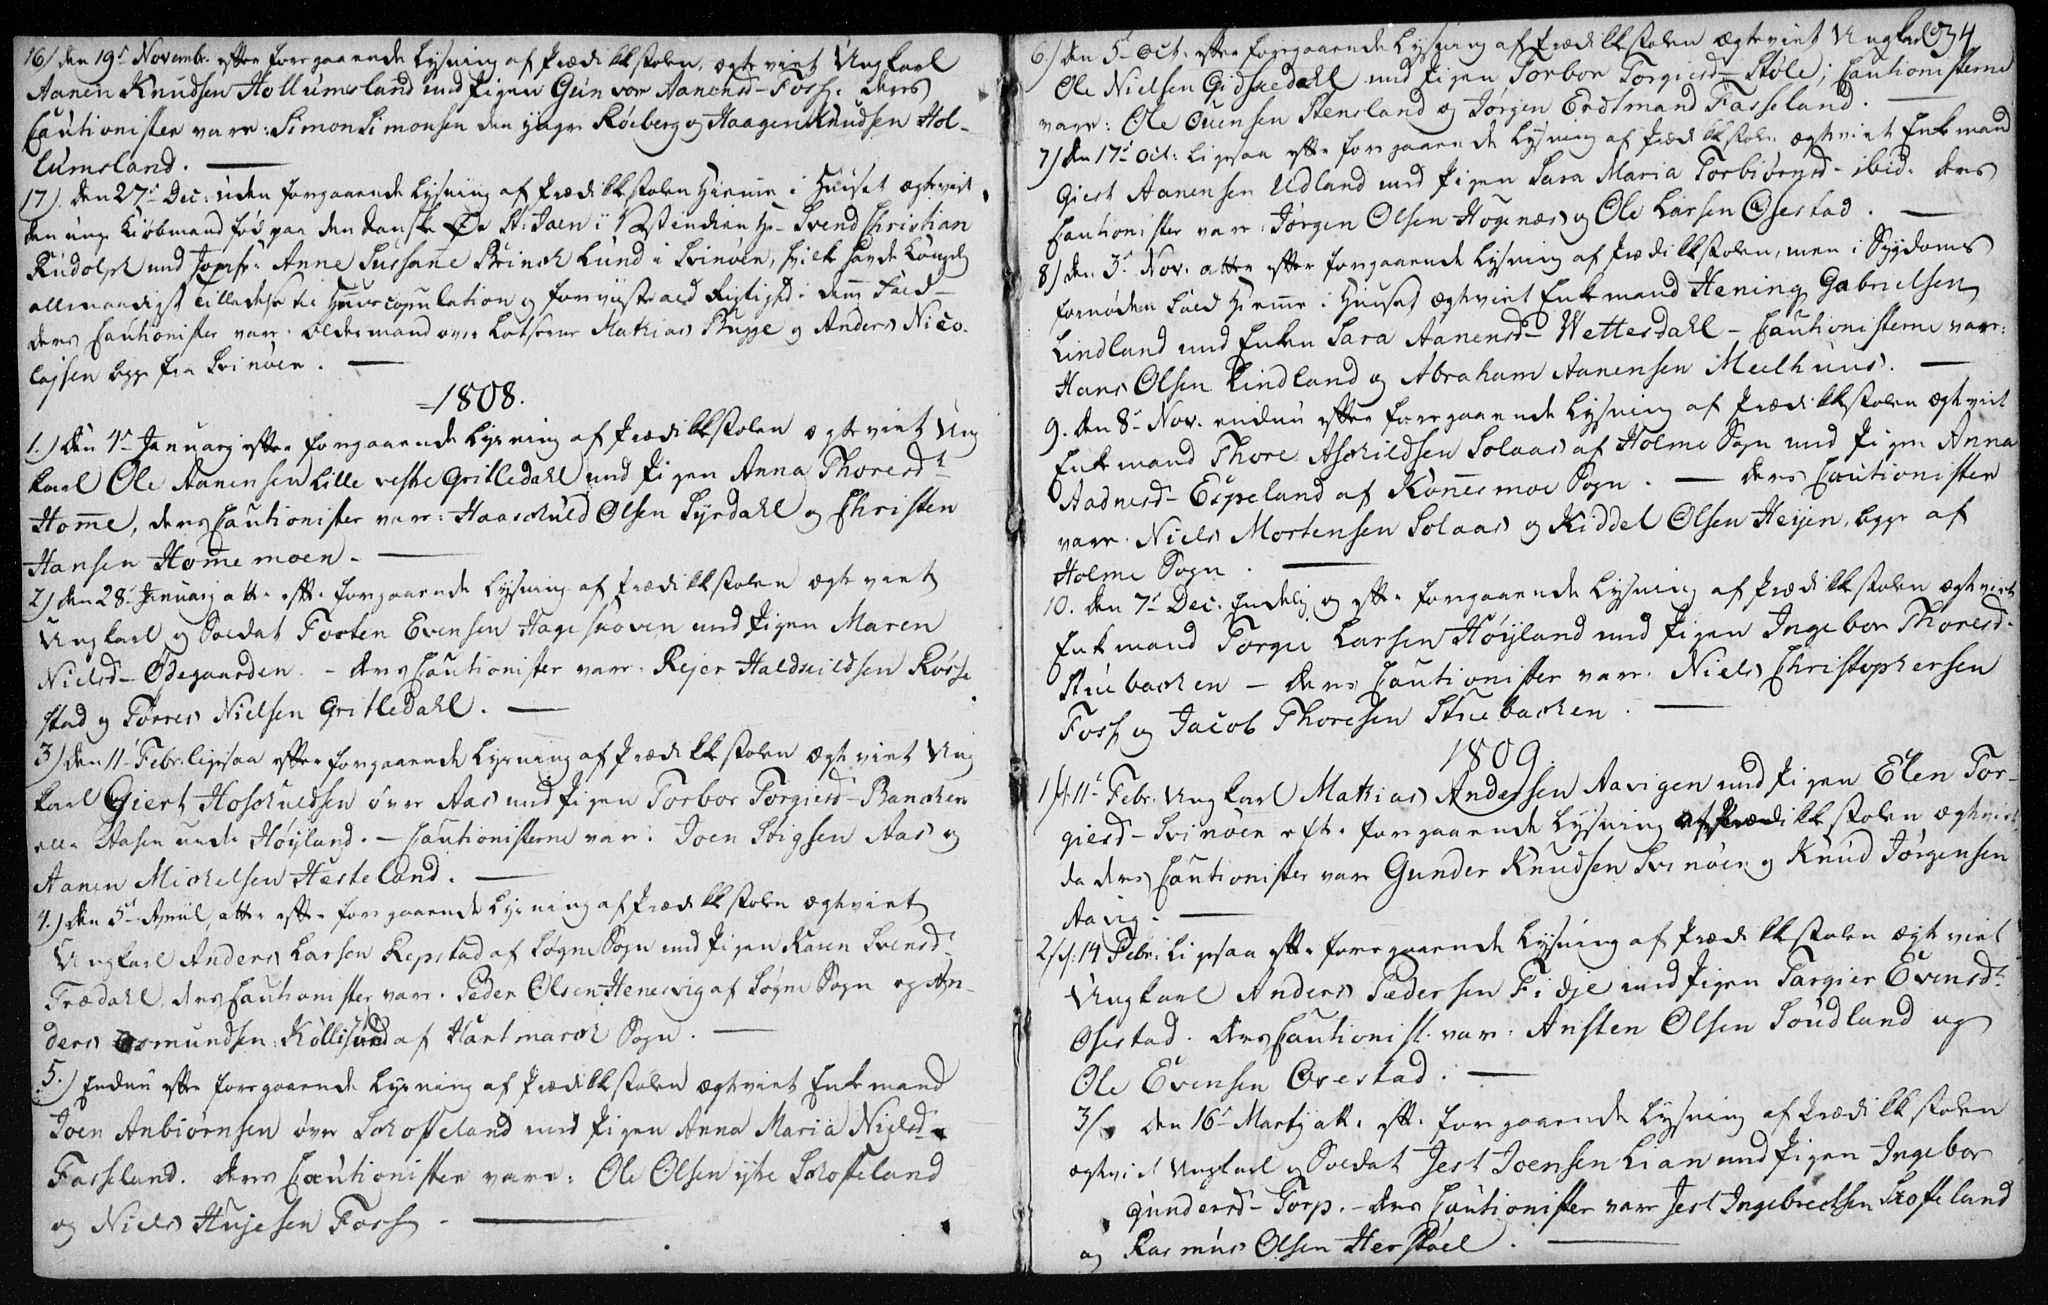 16/ den 19de Novembr. efter foregaaende Lysning af Prædikestolen, egteviet Ungkarl
Aanen Knudsen Hollumsland med Pigen Gunvor Aanensd- Foss. deres
Cautionister vare: Simon Simonsen den yngre Røeberg og Haagen Knudsen Hol-
lumsland.
17). den 27de Dec: uden foregaaende Lysning af Prædikestolen hiemme i Huuset egteviet
den unge Kiøbmand før paa den danske Øe St: Jaen i Vestindien Hr. Svend Christian
Rudolph med Jomfr: Anne Susane Brinch Lund i Svinøen, hvilk havde Kongelig
allernaadigst Tilladelse til Huuscopulation og forviiste ald Rigtighd i dens Sted-
deres Cautionister vare. Oldermand over Lotserne Mathias Bugge og Anders Nico-
lajsen begge fra Svinøen.
1808.
1.) Den 4de January efter foregaaende Lysning af Prædikestolen egteviet Ung
karl Ole Aanensen Lille vestre Gritledahl med Pigen Anna Thoresdr
Home, deres Cautionister vare: Haaschuld Olsen Lyrdahl og Christen
Hansen Home moen.
2) den 28de January atter efter foregaaende Lysning af Prædikestolen egteviet
Ungkarl og Soldat Torten Evensen Hageskoven med Pigen Maren
Nielsd- Ødegaarden. - deres Cautionister vare. Rejer Haldvildsen Rosse
stad og Torres Nielsen Gritledahl.
3) den 11. Febr: ligesaa efter foregaaende Lysning af Prædikestolen egteviet Ung
karl Giert Hoschuldsen øvre Aas med Pigen Torbor Torgiersd- Banchen
eller Aasen under Høyland. - Cautionisterne var: Joen Stigsen Aas og
Aanen Michelsen Hesteland.
4.) den 5te April, atter efter foregaaende Lysning af Prædikestolen egteviet
Ungkarl Anders Larsen Repstad af Søgne Sogn med Pigen Karen Svensdr
Trædahl. deres Cautionister vare. Peder Olsen Henesvig af Søgne Sogn og An-
ders Osmundsen Kollisund af Hartmarck Sogn.
5.) Endnu efter foregaaende Lysning af Prædikestolen egteviet Enkemand
Joen Anbiørnsen øvre Schoffeland med Pigen Anna Maria Nielsd-
Fasseland. deres Cautionister vare: Ole Olsen ytre Schoffeland
og Niels Hujesen Foss.
34
6.) den 5te Oct. efter foregaaende Lysning af Prædikestolen egteviet Ungkarl
Ole Nielsen Gidskedahl med Pigen Torbor Torgiersd- Støle; Cautionisterne
vare: Ole Ouensen Stensland og Jørgen Erdtmand Fasseland.
7) den 17de Oct: ligesaa efter foregaaende Lysning af Prædikestolen egteviet Enkemand
Giert Aanensen Udland med Pigen Sara Maria Torbiørnsd- ibid. deres
Cautionister vare: Jørgen Olsen Høgenæs og Ole Larsen Osestad.
8) den 3de Nov. atter efter foregaaende Lysning af Prædikestolen, men i Sygdoms
fornøden Sted hiemme i Huuset, egteviet Enkemand Hening Gabrielsen
Lindland med Enken Sara Aanensd- Wettesdahl - Cautionisterne vare:
Hans Olsen Lindland og Abraham Aanensen Meelhuus.
9. den 8de Nov. endnu efter foregaaende Lysning af Prædikestolen egteviet
Enkemand Thore Aschildsen Solaas af Holme Sogn med Pigen Anna
Aadnesd- Espeland af Konnesmoe Sogn. - deres Cautionister
vare. Niels Mortensen Solaas og Kiddel Olsen Heyen, begge af
Holme Sogn.
10. den 7de Dec. Endelig og efter foregaaende Lysning af Prædikestolen egteviet
Enkemand Torgie Larsen Høyland med Pigen Ingebor Thoresd-
Stuebachen - deres Cautionister vare. Niels Christophersen
Foss og Jacob Thoresen Stuebachen.
1809.
1/ d. 11te Febr. Ungkarl Mathias Andersen Aavigen med Pigen Elen Tor-
giersd- Svinøen efter foregaaende Lysning af Prædikestolen egteviet,
da deres Cautionister vare Gunder Knudsen Svinøen og Knud Jørgensen
Aavig.
2/ d: 14 Febr: ligesaa efter foregaaende Lysning af Prædikestolen egteviet
Ungkarl Anders Pedersen Fidje med Pigen Targier Evensdr
Osestad. deres Cautionist. var: Aristen Olsen Soudland og
Ole Evensen Osestad.
3/ den 16de Marty att. eft. foregaaende Lysning af Prædikestolen
egteviet Ungkarl og Soldat Jest Joensen Lian med Pigen Ingebor
Gundersd- Torp. - deres Cautionister vare Jest Ingebrectsen Skoffeland
og Rasmus Olsen Herstøel.